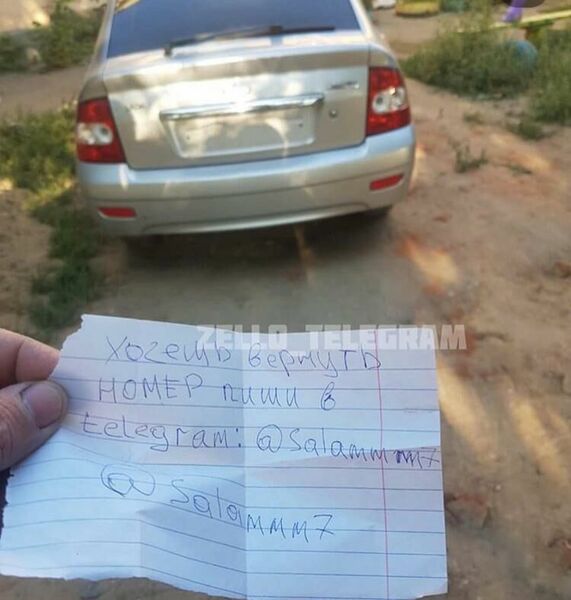 ZELLO_TELEGRAM
Хочешь вернуть
НОМЕР пиши в
telegram: @Salammm7
@Salammm7